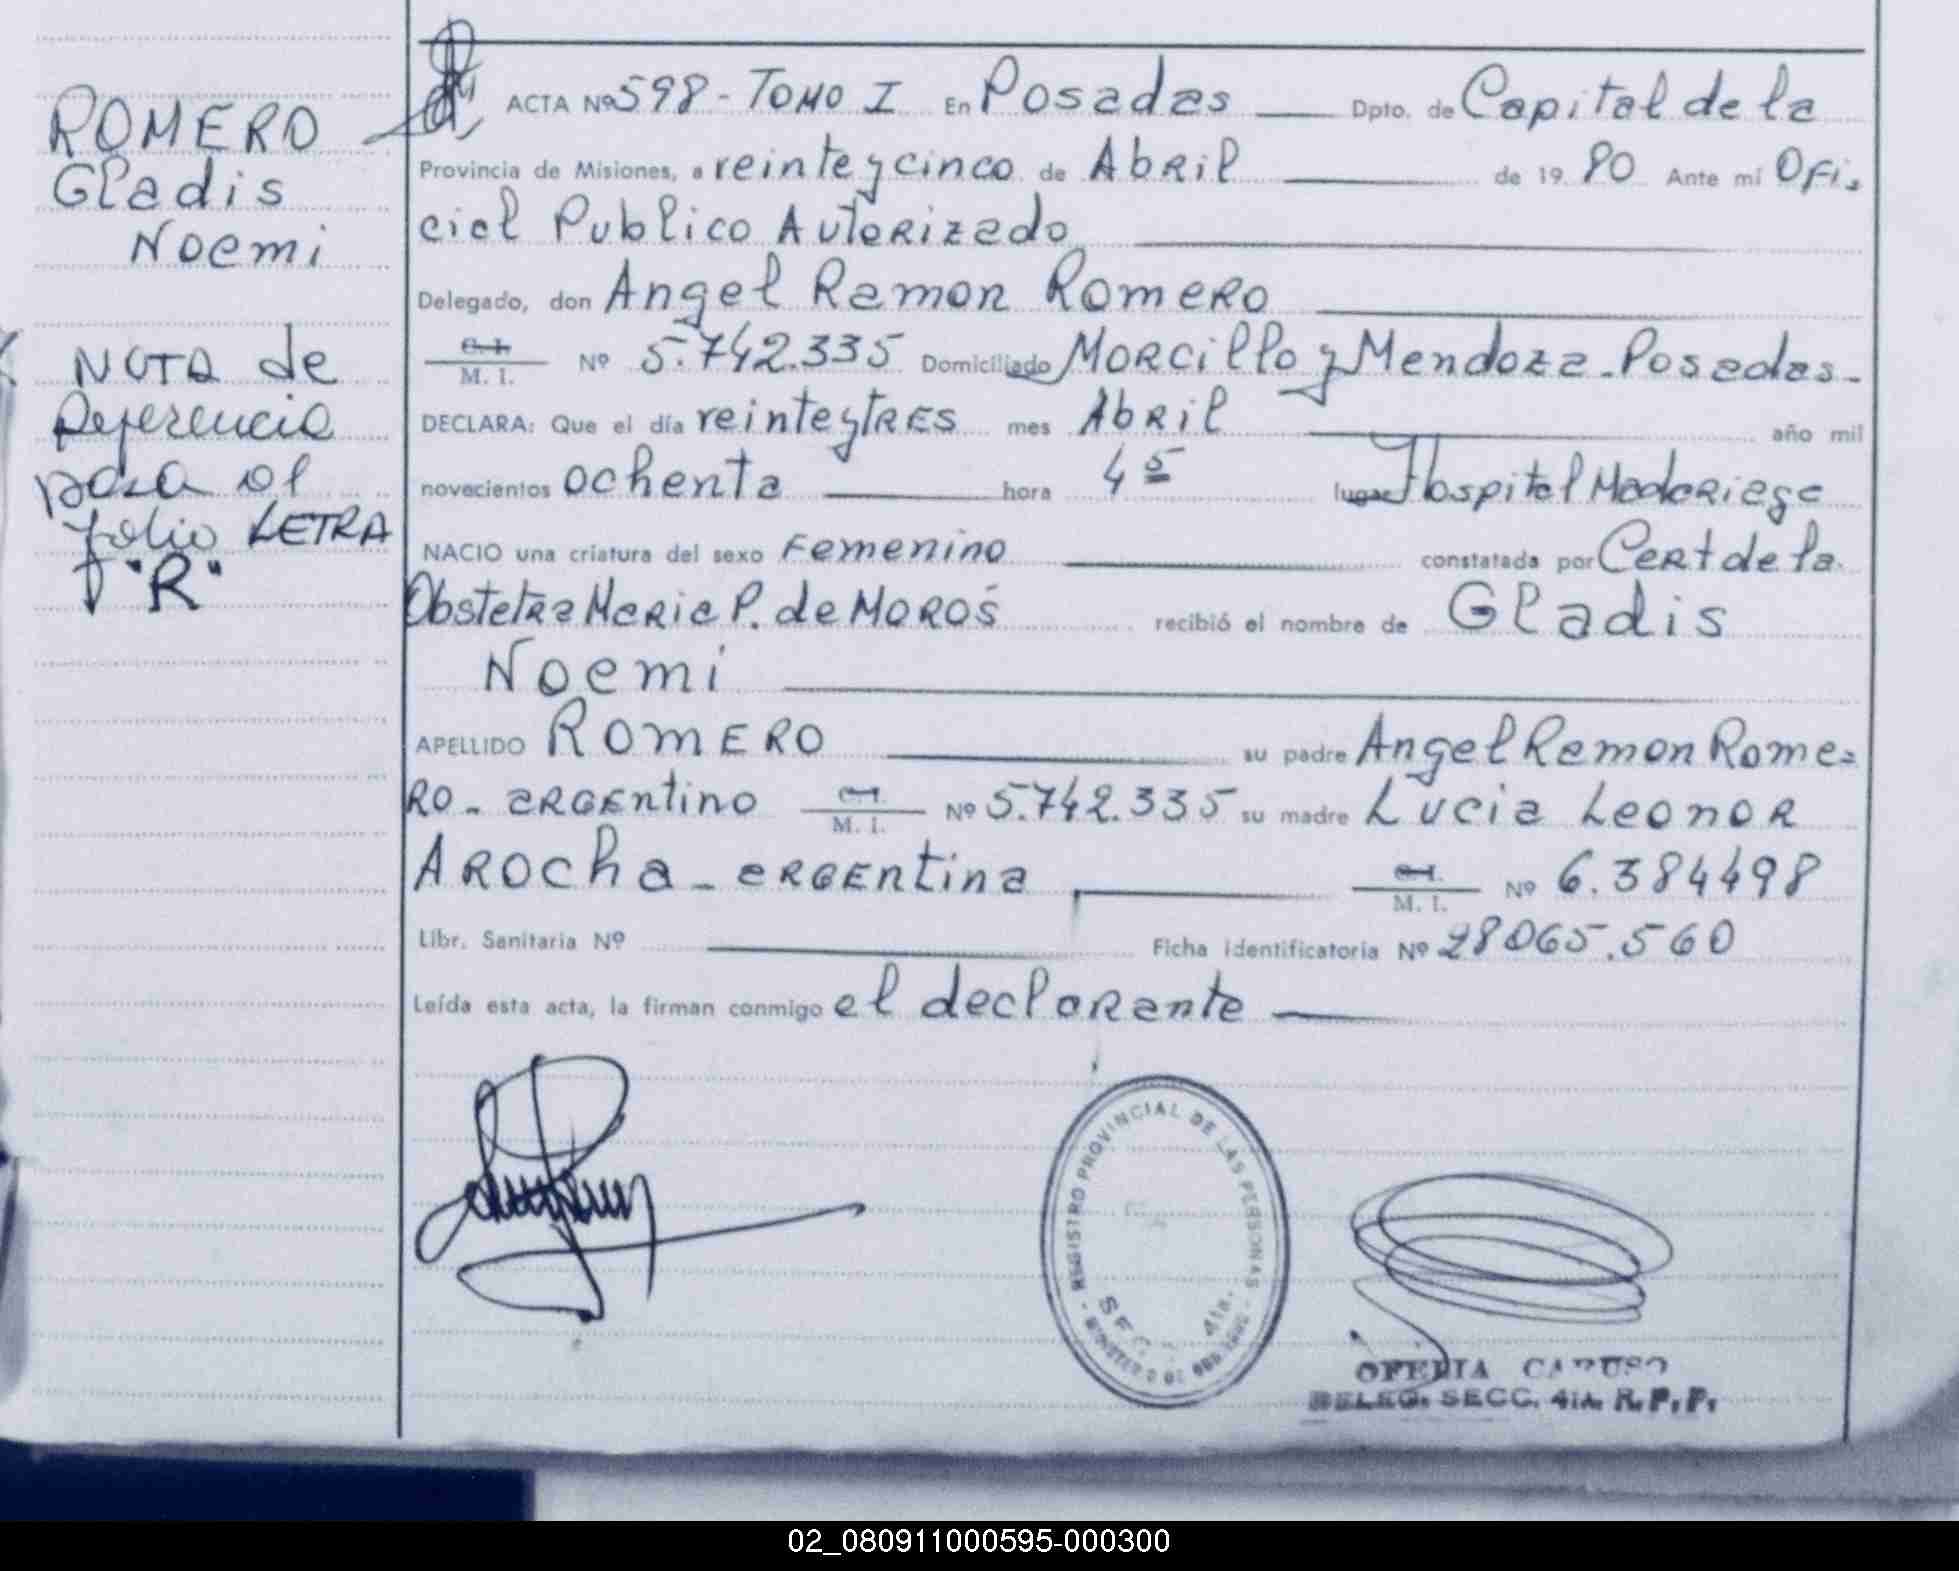 ROMERO
Gladis
Noemi
NOTA de
Referencia
pasa al
folio LETRA
"R"
ACTA Nº 598 - TOMO I En Posadas Dpto. de Capital de la
Provincia de Misiones, a veinte y cinco de Abril de 19 80 Ante mí Ofi-
cial Publico Autorizado
Delegado, don Angel Ramon Romero
C. I. M. I. Nº 5.742.335 Domiciliado Morcillo y Mendoza - Posadas -
DECLARA: Que el día veinte y tres mes Abril año mil
novecientos ochenta hora 4 5 lugar Hospital Madariaga
NACIO una criatura del sexo Femenino constatada por Cert de la
Obstetra Maria P. de Moros recibió el nombre de Gladis
Noemi
APELLIDO ROMERO su padre Angel Ramon Rome=
ro - argentino C. I. M. I. Nº 5.742.335 su madre Lucia Leonor
Arocha - argentina C. I. M. I. Nº 6.384498
Libr. Sanitaria Nº Ficha identificatoria Nº 28065.560
Leída esta acta, la firman conmigo el declarante
REGISTRO PROVINCIAL DE LAS PERSONAS
SEC. 4ta.
OFELIA CARUSO
DELEG. SECC. 4ta. R. P. P.
02_080911000595-000300